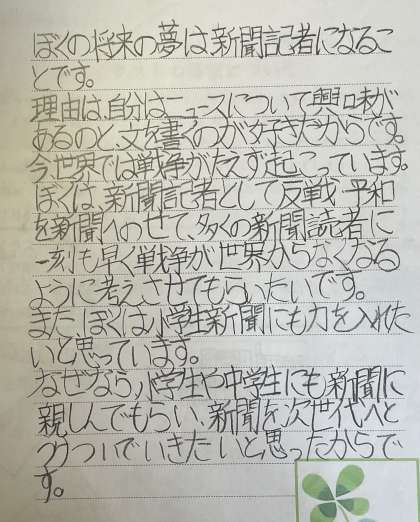 ぼくの将来の夢は、新聞記者になるこ
とです。
理由は、自分はニュースについて興味が
あるのと、文を書くのが好きだからです。
今、世界では戦争がたえず起こっています。
ぼくは、新聞記者として反戦・平和
を新聞へのせて、多くの新聞読者に
一刻も早く戦争が世界からなくなる
ように考えさせてもらいたいです。
また、ぼくは小学生新聞にも力を入れた
いと思っています。
なぜなら、小学生や中学生にも新聞に
親しんでもらい、新聞を次世代へと
つづいでいきたいと思ったからで
す。